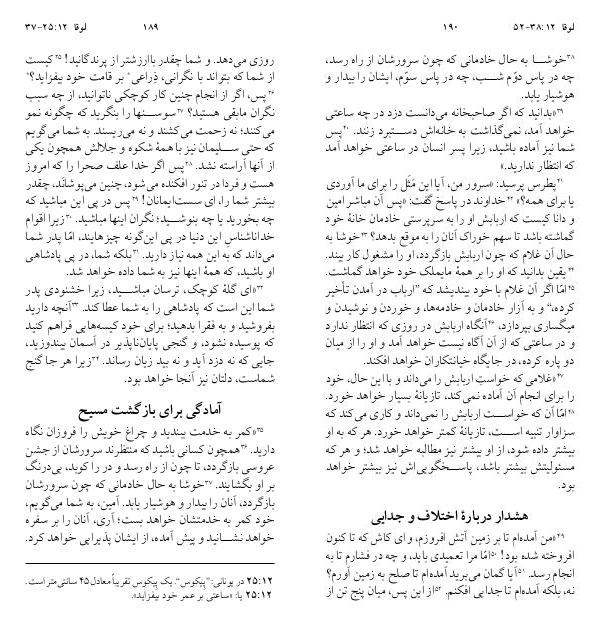 ۱۸۹ لوقا ۱۲:‏۲۵-‏۳۷
روزی می‌دهد. و شما چقدر باارزشتر از پرندگانید! ۲۵کیست
از شما که بتواند با نگرانی، ذِراعی* بر قامت خود بیفزاید؟*
۲۶پس، اگر از انجام چنین کار کوچکی ناتوانید، از چه سبب
نگران مابقی هستید؟ ۲۷سوسنها را بنگرید که چگونه نمو
می‌کنند؛ نه زحمت می‌کشند و نه می‌ریسند. به شما می‌گویم
که حتی سلیمان نیز با همهٔ شکوه و جلالش همچون یکی
از آنها آراسته نشد. ۲۸پس اگر خدا علف صحرا را که امروز
هست و فردا در تنور افکنده می‌شود، چنین می‌پوشانَد، چقدر
بیشتر شما را، ای سست‌ایمانان! ۲۹پس در پی این مباشید که
چه بخورید یا چه بنوشید؛ نگران اینها مباشید. ۳۰زیرا اقوام
خداناشناس این دنیا در پی این‌گونه چیزهایند، امّا پدر شما
می‌داند که به این همه نیاز دارید. ۳۱بلکه شما، در پی پادشاهی
او باشید، که همهٔ اینها نیز به شما داده خواهد شد.
۳۲«ای گلهٔ کوچک، ترسان مباشید، زیرا خشنودی پدر
شما این است که پادشاهی را به شما عطا کند. ۳۳آنچه دارید
بفروشید و به فقرا بدهید؛ برای خود کیسه‌هایی فراهم کنید
که پوسیده نشود، و گنجی پایان‌ناپذیر در آسمان بیندوزید،
جایی که نه دزد آید و نه بید زیان رساند. ۳۴زیرا هر جا گنج
شماست، دلتان نیز آنجا خواهد بود.
آمادگی برای بازگشت مسیح
۳۵«کمر به خدمت ببندید و چراغ خویش را فروزان نگاه
دارید. ۳۶همچون کسانی باشید که منتظرند سرورشان از جشن
عروسی بازگردد، تا چون از راه رسد و در را کوبد، بی‌درنگ
بر او بگشایند. ۳۷خوشا به حال خادمانی که چون سرورشان
بازگردد، آنان را بیدار و هوشیار یابد. آمین، به شما می‌گویم،
خود کمر به خدمتشان خواهد بست؛ آری، آنان را بر سفره
خواهد نشانید و پیش آمده، از ایشان پذیرایی خواهد کرد.
۲۵:۱۲ در یونانی: ”پِیکوس“. یک پیکوس تقریباً معادل ۴۵ سانتی‌متر است.
۲۵:۱۲ یا: «ساعتی بر عمر خود بیفزاید».
۱۹۰ لوقا ۱۲:‏۳۸-‏۵۲
۳۸خوشا به حال خادمانی که چون سرورشان از راه رسد،
چه در پاس دوّم شب، چه در پاس سوّم، ایشان را بیدار و
هوشیار یابد.
۳۹«بدانید که اگر صاحبخانه می‌دانست دزد در چه ساعتی
خواهد آمد، نمی‌گذاشت به خانه‌اش دستبرد زنند. ۴۰پس
شما نیز آماده باشید، زیرا پسر انسان در ساعتی خواهد آمد
که انتظار ندارید.»
۴۱پطرس پرسید: «سرور من، آیا این مَثَل را برای ما آوردی
یا برای همه؟» ۴۲خداوند در پاسخ گفت: «پس آن مباشر امین
و دانا کیست که اربابش او را به سرپرستی خادمان خانهٔ خود
گماشته باشد تا سهم خوراک آنان را به موقع بدهد؟ ۴۳خوشا به
حال آن غلام که چون اربابش بازگردد، او را مشغول کار بیند.
۴۴یقین بدانید که او را بر همهٔ مایملک خود خواهد گماشت.
۴۵امّا اگر آن غلام با خود بیندیشد که ”ارباب در آمدن تأخیر
کرده،“ و به آزار خادمان و خادمه‌ها، و خوردن و نوشیدن و
میگساری بپردازد، ۴۶آنگاه اربابش در روزی که انتظار ندارد
و در ساعتی که از آن آگاه نیست خواهد آمد و او را از میان
دو پاره کرده، در جایگاه خیانتکاران خواهد افکند.
۴۷«غلامی که خواستِ اربابش را می‌داند و با این حال، خود
را برای انجام آن آماده نمی‌کند، تازیانهٔ بسیار خواهد خورد.
۴۸امّا آن که خواست اربابش را نمی‌داند و کاری می‌کند که
سزاوار تنبیه است، تازیانهٔ کمتر خواهد خورد. هر که به او
بیشتر داده شود، از او بیشتر نیز مطالبه خواهد شد؛ و هر که
مسئولیتش بیشتر باشد، پاسخگویی‌اش نیز بیشتر خواهد
بود.
هشدار دربارهٔ اختلاف و جدایی
۴۹«من آمده‌ام تا بر زمین آتش افروزم، و ای کاش که تا کنون
افروخته شده بود! ۵۰امّا مرا تعمیدی باید، و چه در فشارم تا به
انجام رسد. ۵۱آیا گمان می‌برید آمده‌ام تا صلح به زمین آورم؟
نه، بلکه آمده‌ام تا جدایی افکنم. ۵۲از این پس، میان پنج تن از